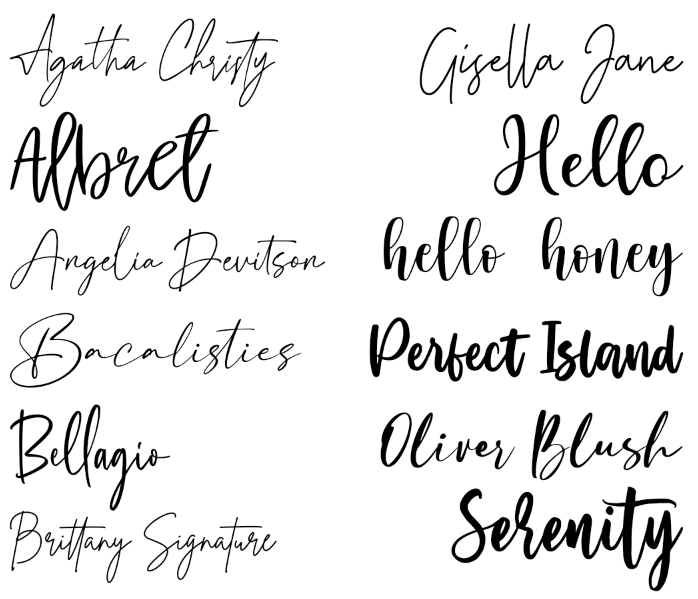 Agatha Christy
Albret
Angelia Devitson
Bacalisties
Bellagio
Brittany Signature
Gisella Jane
Hello
hello honey
Perfect Island
Oliver Blush
Serenity